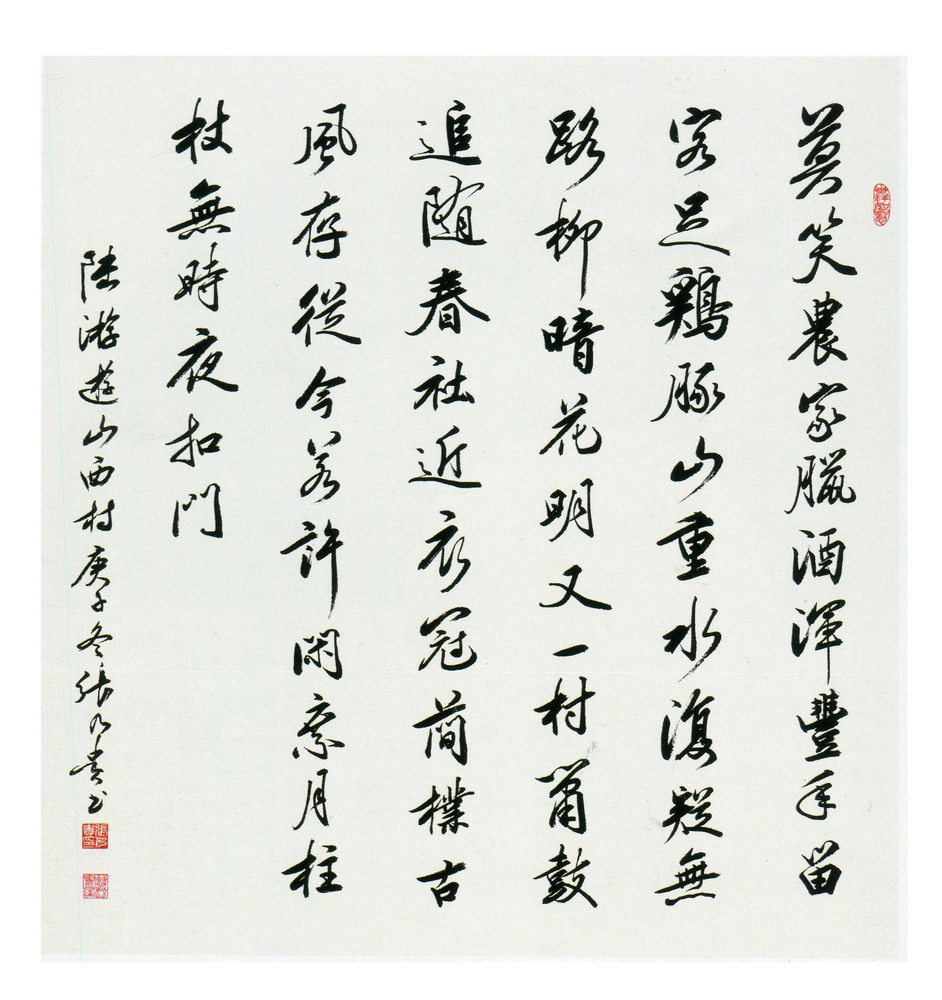 莫笑農家臘酒渾豐年留
客足鷄豚山重水複疑無
路柳暗花明又一村簫鼓
追随春社近衣冠簡樸古
風存從今若許閑乘月柱
杖無時夜扣門
陸游遊山西村庚子冬張乃貴书